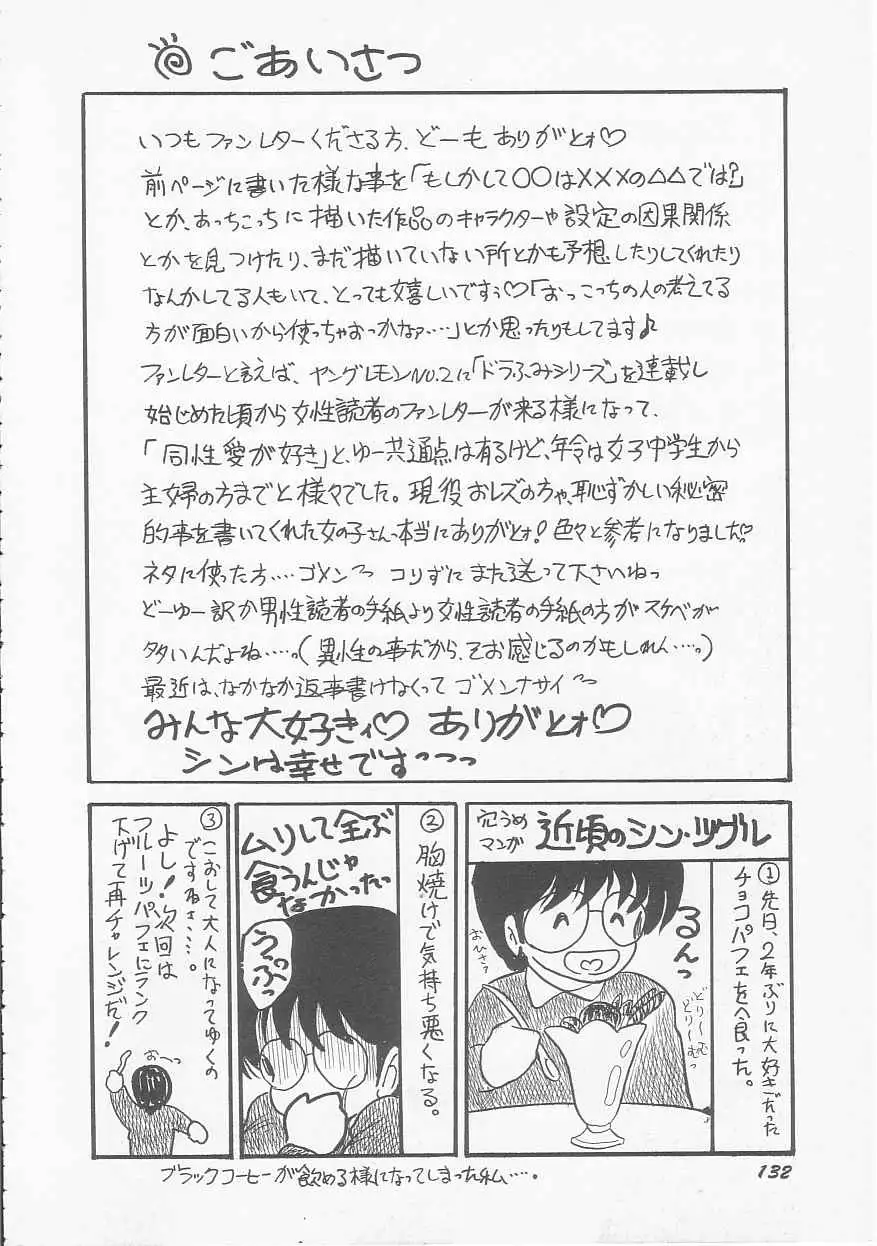 ごあいさつ
いつもファンレターくださる方、どーもありがとォ♡
前ページに書いた様な事を「もしかして○○は×××の△△では?」
とか、あっちこっちに描いた作品のキャラクターや設定の因果関係
とかを見つけたり、まだ描いていない所とかも予想したりしてくれたり
なんかしてる人もいて、とっても嬉しいですぅ♡「おっこっちの人の考えてる
方が面白いから使っちゃおっかなァ……」とか思ったりもしてます♪
ファンレターと言えば、ヤングレモンNO.2に「ドラふみシリーズ」を連載し
始じめた頃から女性読者のファンレターが来る様になって、
「同性愛が好き」と、ゆー共通点は有るけど、年令は女子中学生から
主婦の方までと様々でした。現役おレズの方や、恥ずかしい秘密
的事を書いてくれた女の子さんっ本当にありがとォ!色々と参考になりましたっ♡
ネタに使った方……ゴメン〜 コリずにまた送って下さいねっ
どーゆー訳か男性読者の手紙より女性読者の手紙の方がスケベが
多いんだよね……っ(異性の事だから、そお感じるのかもしれん……っ)
最近は、なかなか返事書けなくってゴメンナサイ〜
みんな大好きィ♡ ありがとォ♡
シンは幸せですっっっ
穴うめマンガ 近頃のシン・ツグル
①先日、2年ぶりに大好きだった
チョコパフェを食った。
るんっ
おひさァ
どり〜む
どり〜むっ
②胸焼けで気持ち悪くなる。
ムリして全ぶ
食うんじゃ
なかったっ
うっぷっ
③こおして大人になってゆくの
ですねェ……。
よし!次回は
フルーツパフェにランク
下げて再チャレンジだ!
おーっ
ブラックコーヒーが飲める様になってしまった私……。
132